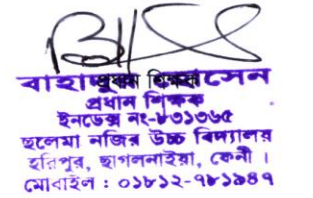 প্রধান শিক্ষক
বাহাদুর হোসেন
প্রধান শিক্ষক
ইনডেক্স নং-৮৩১৩৬৫
ছলেমা নজির উচ্চ বিদ্যালয়
হরিপুর, ছাগলনাইয়া, ফেনী ।
মোবাইল : ০১৮১২-৭৮১৯৪৭